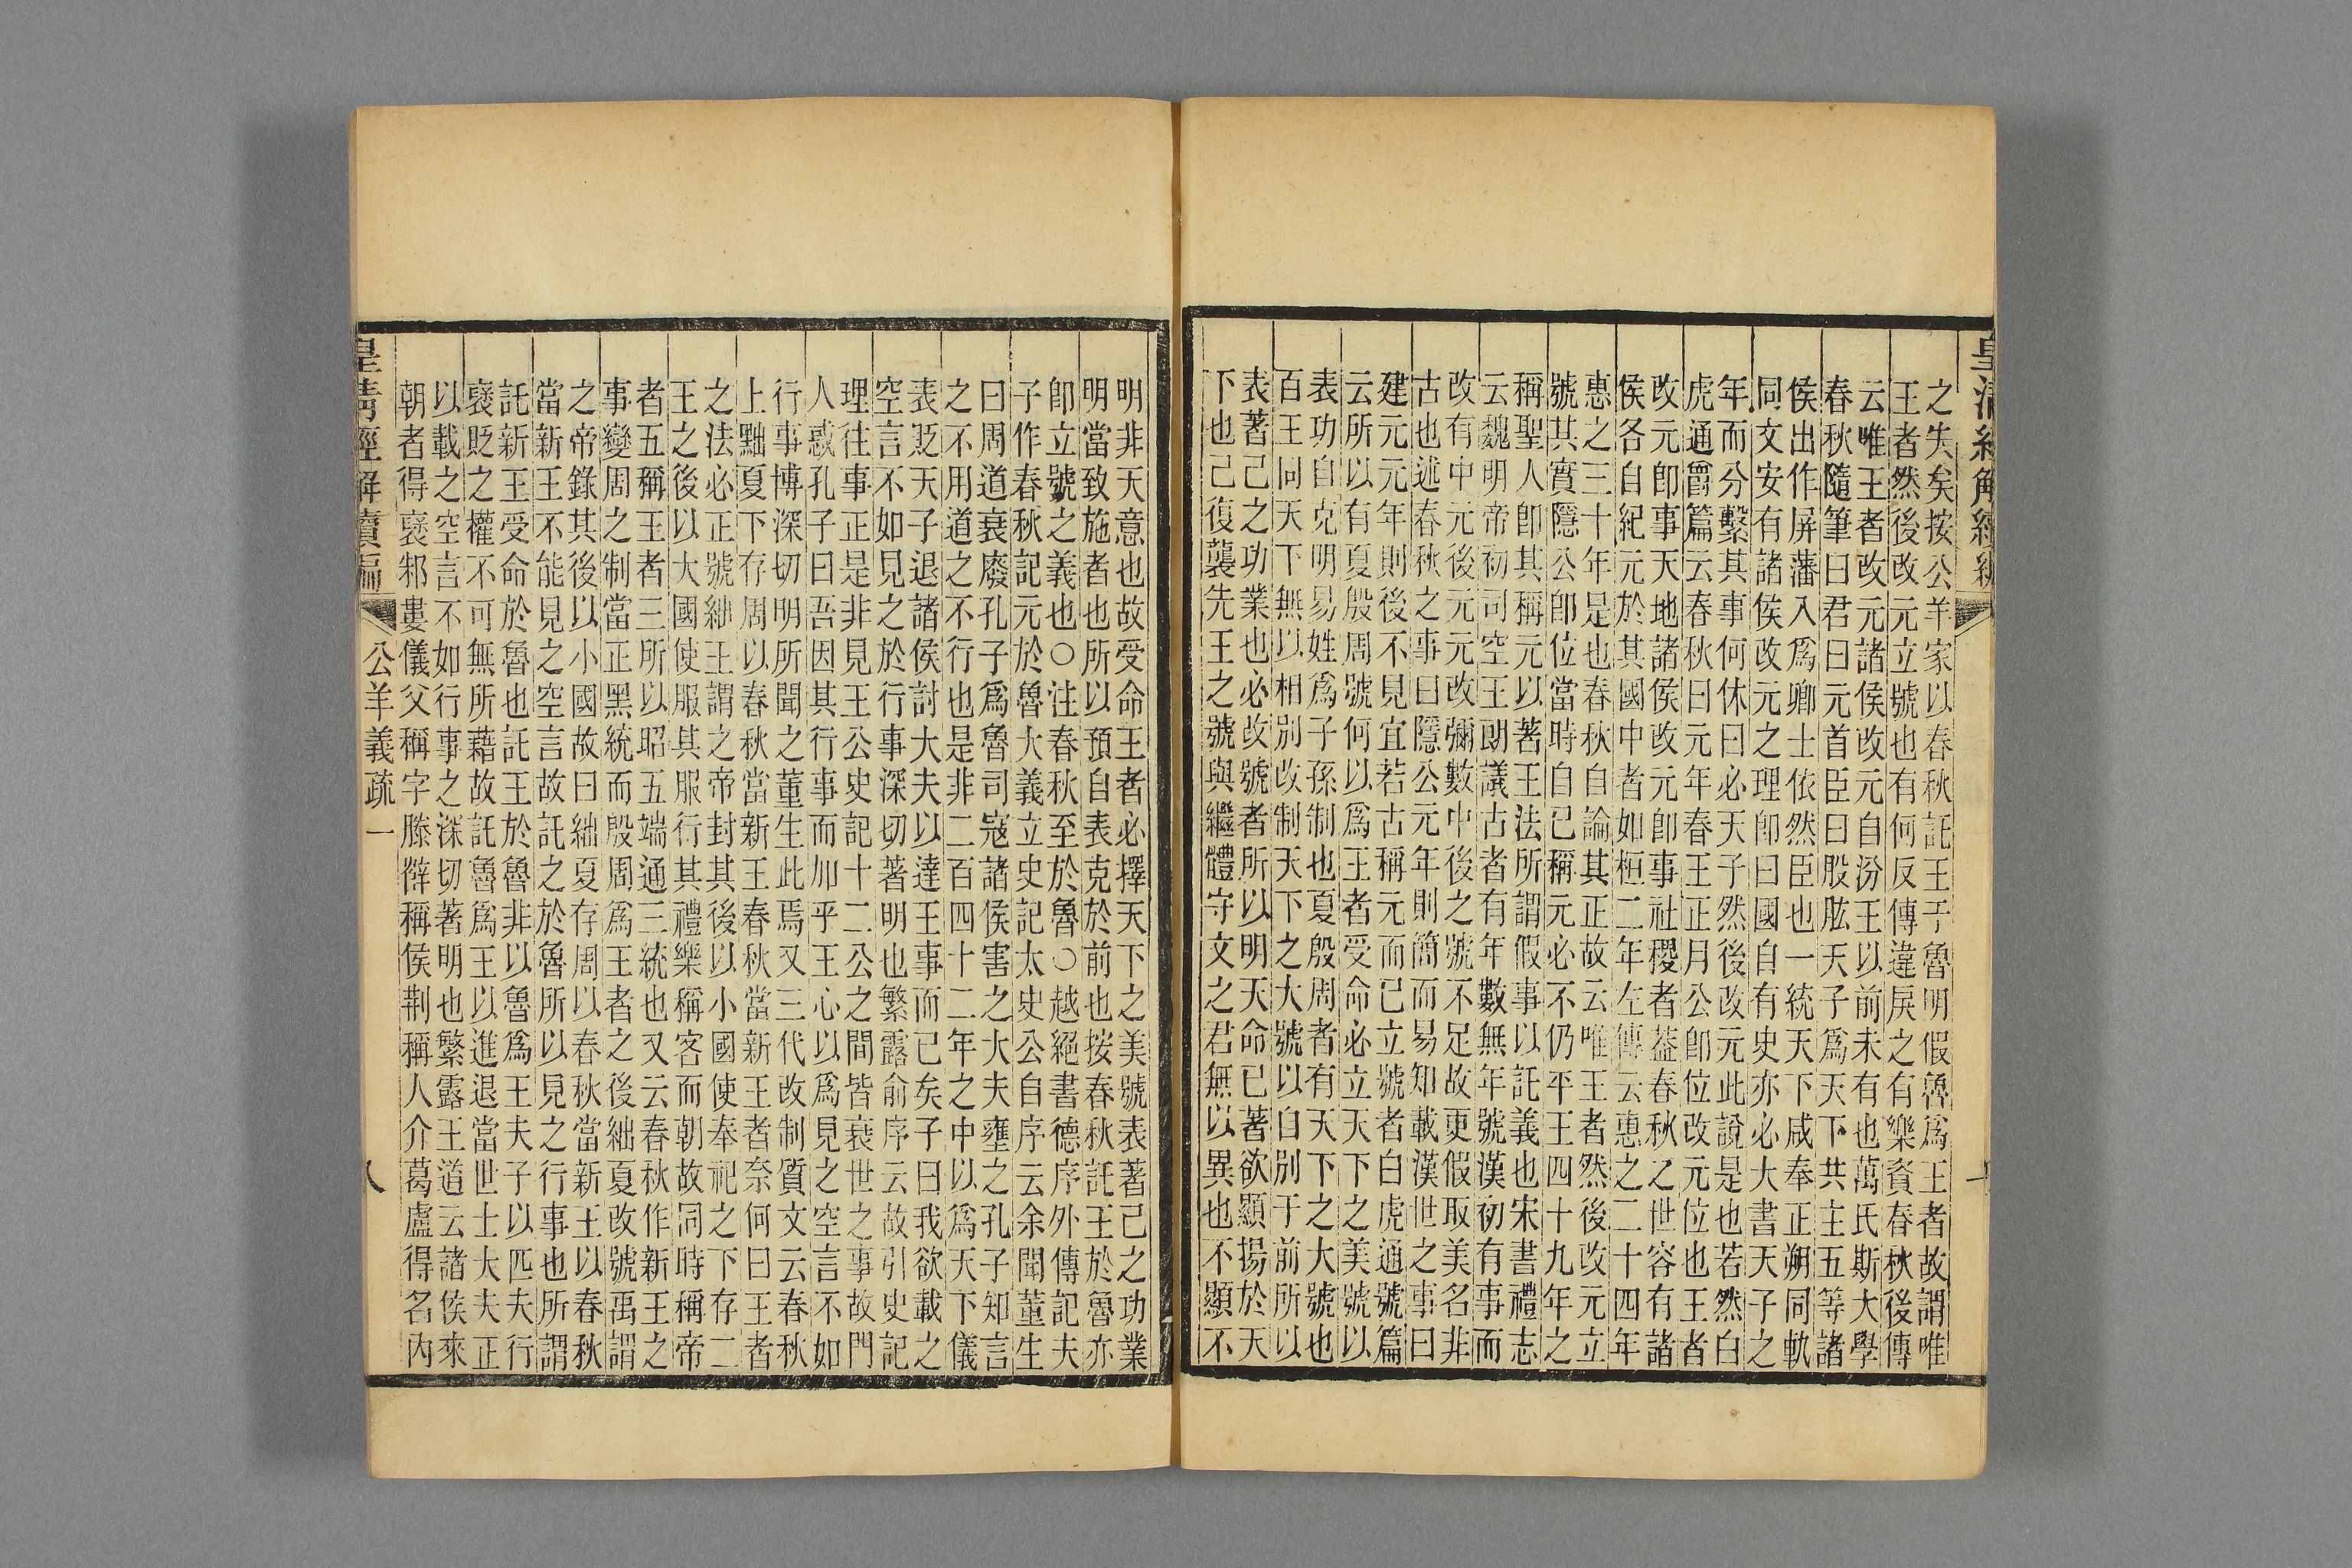 皇清經解續編
之失矣按公羊家以春秋託王于魯明假魯爲王者故謂唯
王者然後改元立號也有何反傳違戾之有樂資春秋後傳
云唯王者改元諸侯改元自汾王以前未有也萬氏斯大學
春秋隨筆曰君曰元首臣曰股肱天子爲天下共主五等諸
侯出作屏藩入爲卿士依然臣也一統天下咸奉正朔同軌
同文安有諸侯改元之理卽曰國自有史亦必大書天子之
年而分繫其事何休曰必天子然後改元此說是也若然白
虎通爵篇云春秋曰元年春王正月公卽位改元位也王者
改元卽事天地諸侯改元卽事社稷者葢春秋之世容有諸
侯各自紀元於其國中者如桓二年左傳云惠之二十四年
惠之三十年是也春秋自論其正故云唯王者然後改元立
號其實隱公卽位當時自已稱元必不仍平王四十九年之
稱聖人卽其稱元以著王法所謂假事以託義也宋書禮志
云魏明帝初司空王朗議古者有年數無年號漢初有事而
改有中元後元元改彌數中後之號不足故更假取美名非
古也述春秋之事曰隱公元年則簡而易知載漢世之事曰
建元元年則後不見宜若古稱元而已立號者白虎通號篇
云所以有夏殷周號何以爲王者受命必立天下之美號以
表功自克明易姓爲子孫制也夏殷周者有天下之大號也
百王同天下無以相別改制天下之大號以自別于前所以
表著己之功業也必改號者所以明天命已著欲顯揚於天
下也己復襲先王之號與繼體守文之君無以異也不顯不
明非天意也故受命王者必擇天下之美號表著己之功業
明當致施者也所以預自表克於前也按春秋託王於魯亦
卽立號之義也○注春秋至於魯○越絕書德序外傳記夫
子作春秋記元於魯大義立史記太史公自序云余聞董生
曰周道衰廢孔子爲魯司寇諸侯害之大夫壅之孔子知言
之不用道之不行也是非二百四十二年之中以爲天下儀
表貶天子退諸侯討大夫以達王事而已矣子曰我欲載之
空言不如見之於行事深切著明也繁露俞序云故引史記
理往事正是非見王公史記十二公之間皆衰世之事故門
人惑孔子曰吾因其行事而加乎王心以爲見之空言不如
行事博深切明所聞之董生此焉又三代改制質文云春秋
上黜夏下存周以春秋當新王春秋當新王者奈何曰王者
之法必正號絀王謂之帝封其後以小國使奉祀之下存二
王之後以大國使服其服行其禮樂稱客而朝故同時稱帝
者五稱王者三所以昭五端通三統也又云春秋作新王之
事變周之制當正黑統而殷周爲王者之後絀夏改號禹謂
之帝錄其後以小國故曰絀夏存周以春秋當新王以春秋
當新王不能見之空言故託之於魯所以見之行事也所謂
託新王受命於魯也託王於魯非以魯爲王夫子以匹夫行
襃貶之權不可無所藉故託魯爲王以進退當世士大夫正
以載之空言不如行事之深切著明也繁露王道云諸侯來
朝者得襃邾婁儀父稱字滕薛稱侯荆稱人介葛盧得名內
皇清經解續編
公羊義疏一
八